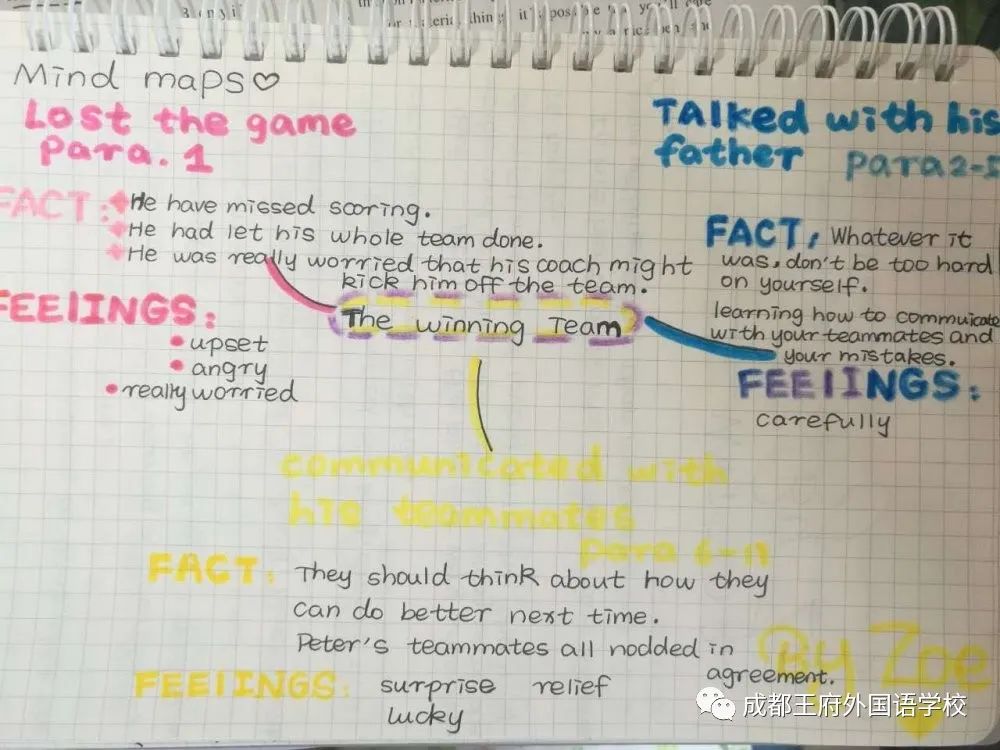 Mind maps♡
Lost the game
Para. 1
FACT:
He have missed scoring.
He had let his whole team done.
He was really worried that his coach might
kick him off the team.
FEElINGS:
upset
angry
really worried
The winning Team
TAlked with his
father para2-5
FACT: Whatever it
was, don't be too hard
on yourself.
learning how to commuicate
with your teammates and
your mistakes.
FEElINGS:
carefully
communicated with
his teammates
para 6-11
FACT: They should think about how they
can do better next time.
Peter's teammates all nodded in
agreement.
FEElINGS: surprise relief
lucky
By Zoe
成都王府外国语学校